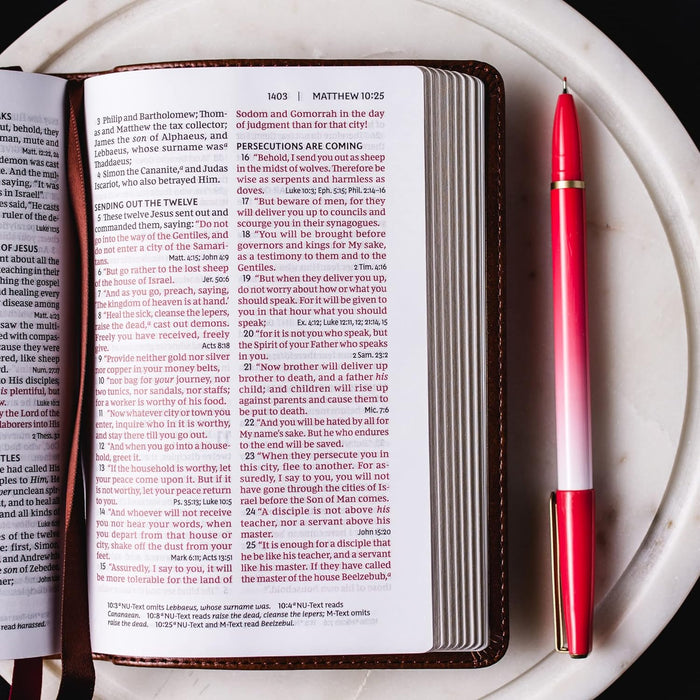 AKS
ut, behold, they
man, mute and
Matt. 12:22, 24
demon was cast
ke. And the mul-
saying, "It was
s in Israel!"
es said, "He casts
ruler of the de-
OF JESUS
ent about all the
teaching in their
ching the gospel
d healing every
disease among
Matt. 4:23
saw the multi-
ed with compas-
cause they were
ered, like sheep
Num. 27:17
to His disciples,
is plentiful, but
Luke 10:2
y the Lord of the
laborers into His
2 Thess. 3:1
TLES
e had called His
ples to Him, He
er unclean spir-
t, and to heal all
and all kinds of
Luke 6:13
of the twelve
e: first, Simon,
nd Andrew his
son of Zebedee,
er; John 1:42
read harassed.
1403 | MATTHEW 10:25
3 Philip and Bartholomew; Thom-
as and Matthew the tax collector;
James the son of Alphaeus, and
Lebbaeus, whose surname wasª
Thaddaeus;
4 Simon the Cananite,ª and Judas
Iscariot, who also betrayed Him.
SENDING OUT THE TWELVE
5 These twelve Jesus sent out and
commanded them, saying: "Do not
go into the way of the Gentiles, and
do not enter a city of the Samari-
tans. Matt. 4:15; John 4:9
6 "But go rather to the lost sheep
of the house of Israel. Jer. 50:6
7 "And as you go, preach, saying,
'The kingdom of heaven is at hand.'
8 "Heal the sick, cleanse the lepers,
raise the dead,ª cast out demons.
Freely you have received, freely
give. Acts 8:18
9 "Provide neither gold nor silver
nor copper in your money belts,
10 "nor bag for your journey, nor
two tunics, nor sandals, nor staffs;
for a worker is worthy of his food.
11 "Now whatever city or town you
enter, inquire who in it is worthy,
and stay there till you go out.
12 "And when you go into a house-
hold, greet it.
13 "If the household is worthy, let
your peace come upon it. But if it
is not worthy, let your peace return
to you. Ps. 35:13; Luke 10:5
14 "And whoever will not receive
you nor hear your words, when
you depart from that house or
city, shake off the dust from your
feet. Mark 6:11; Acts 13:51
15 "Assuredly, I say to you, it will
be more tolerable for the land of
Sodom and Gomorrah in the day
of judgment than for that city!
PERSECUTIONS ARE COMING
16 "Behold, I send you out as sheep
in the midst of wolves. Therefore be
wise as serpents and harmless as
doves. Luke 10:3; Eph. 5:15; Phil. 2:14–16
17 "But beware of men, for they
will deliver you up to councils and
scourge you in their synagogues.
18 "You will be brought before
governors and kings for My sake,
as a testimony to them and to the
Gentiles. 2 Tim. 4:16
19 "But when they deliver you up,
do not worry about how or what you
should speak. For it will be given to
you in that hour what you should
speak; Ex. 4:12; Luke 12:11, 12; 21:14, 15
20 "for it is not you who speak, but
the Spirit of your Father who speaks
in you. 2 Sam. 23:2
21 "Now brother will deliver up
brother to death, and a father his
child; and children will rise up
against parents and cause them to
be put to death. Mic. 7:6
22 "And you will be hated by all for
My name's sake. But he who endures
to the end will be saved.
23 "When they persecute you in
this city, flee to another. For as-
suredly, I say to you, you will not
have gone through the cities of Is-
rael before the Son of Man comes.
24 "A disciple is not above his
teacher, nor a servant above his
master. John 15:20
25 "It is enough for a disciple that
he be like his teacher, and a servant
like his master. If they have called
the master of the house Beelzebub,ª
10:3 ª NU-Text omits Lebbaeus, whose surname was. 10:4 ª NU-Text reads
Cananaean. 10:8 ª NU-Text reads raise the dead, cleanse the lepers; M-Text omits
raise the dead. 10:25 ª NU-Text and M-Text read Beelzebul.